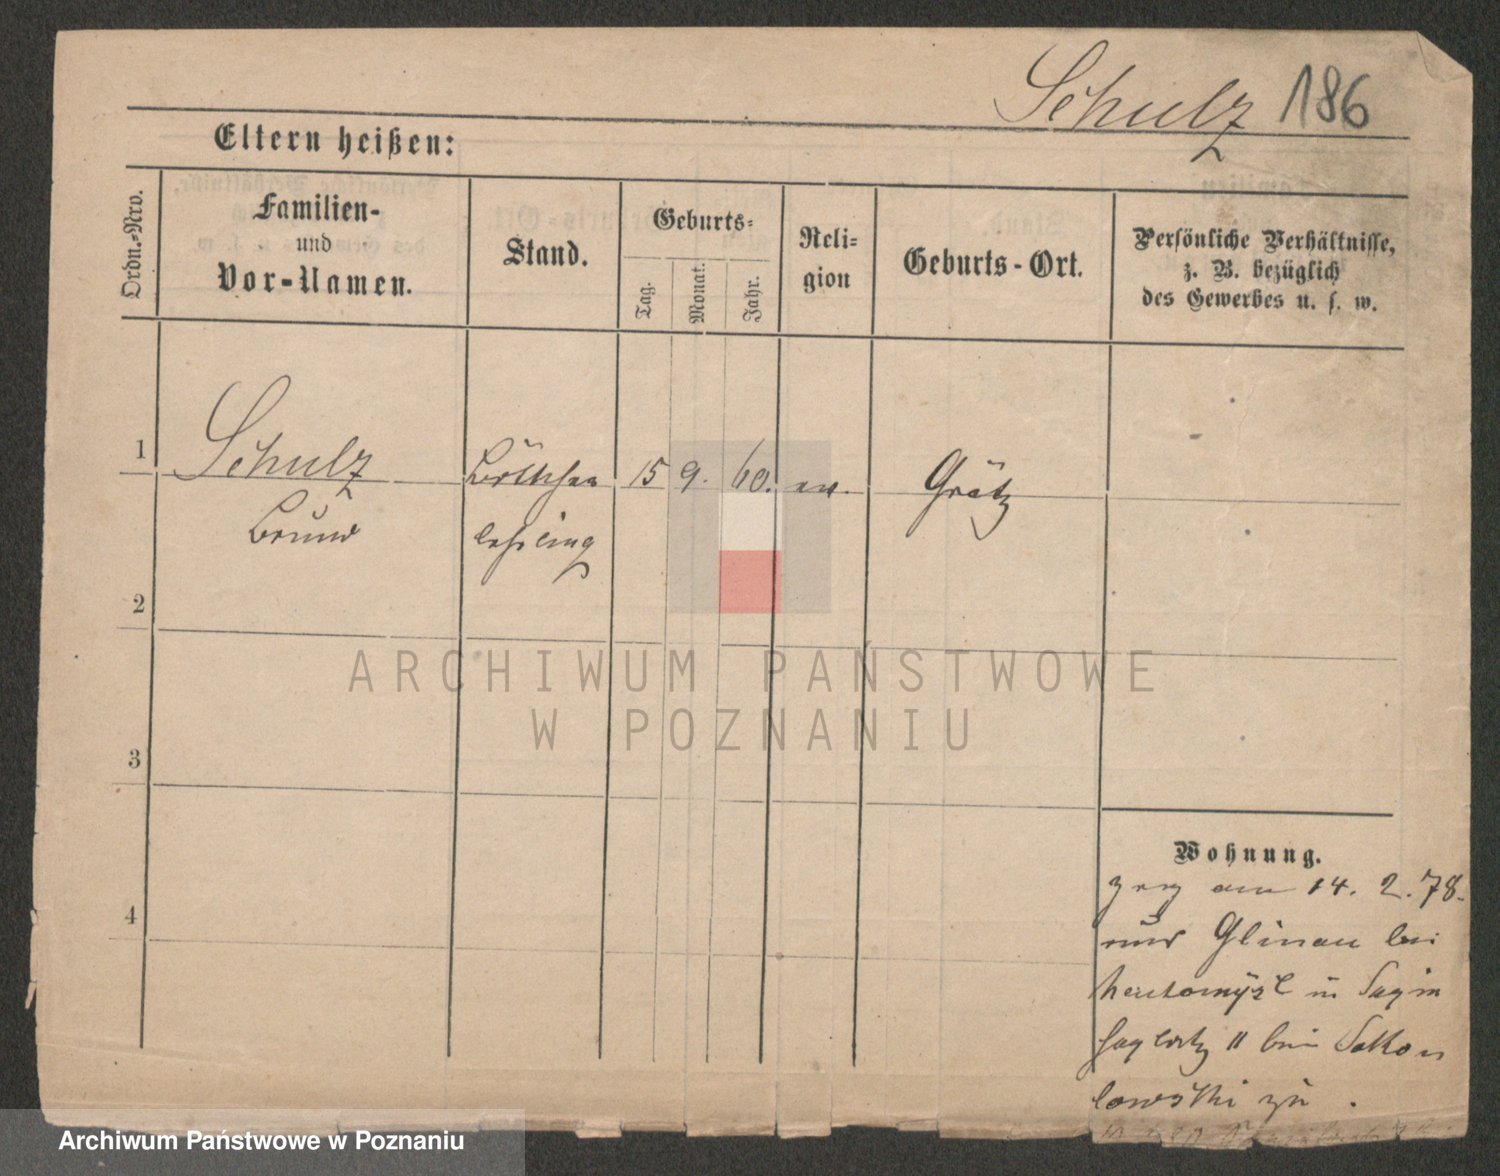 Schulz 186
Eltern heißen:
Ordn.-Nro.
Familien-
und
Vor-Namen.
Stand.
Geburts-
Tag.
Monat.
Jahr.
Reli-
gion
Geburts-Ort.
Persönliche Verhältnisse,
z. B. bezüglich
des Gewerbes u. s. w.
1
Schulz Böttcher 15 9. 60. ev. Grätz
Bruno lehrling
2
ARCHIWUM PAŃSTWOWE
W POZNANIU
3
Wohnung.
zog am 14. 2. 78.
Glinau bei
4
Neutomysl
II bei
zu.
Archiwum Państwowe w Poznaniu